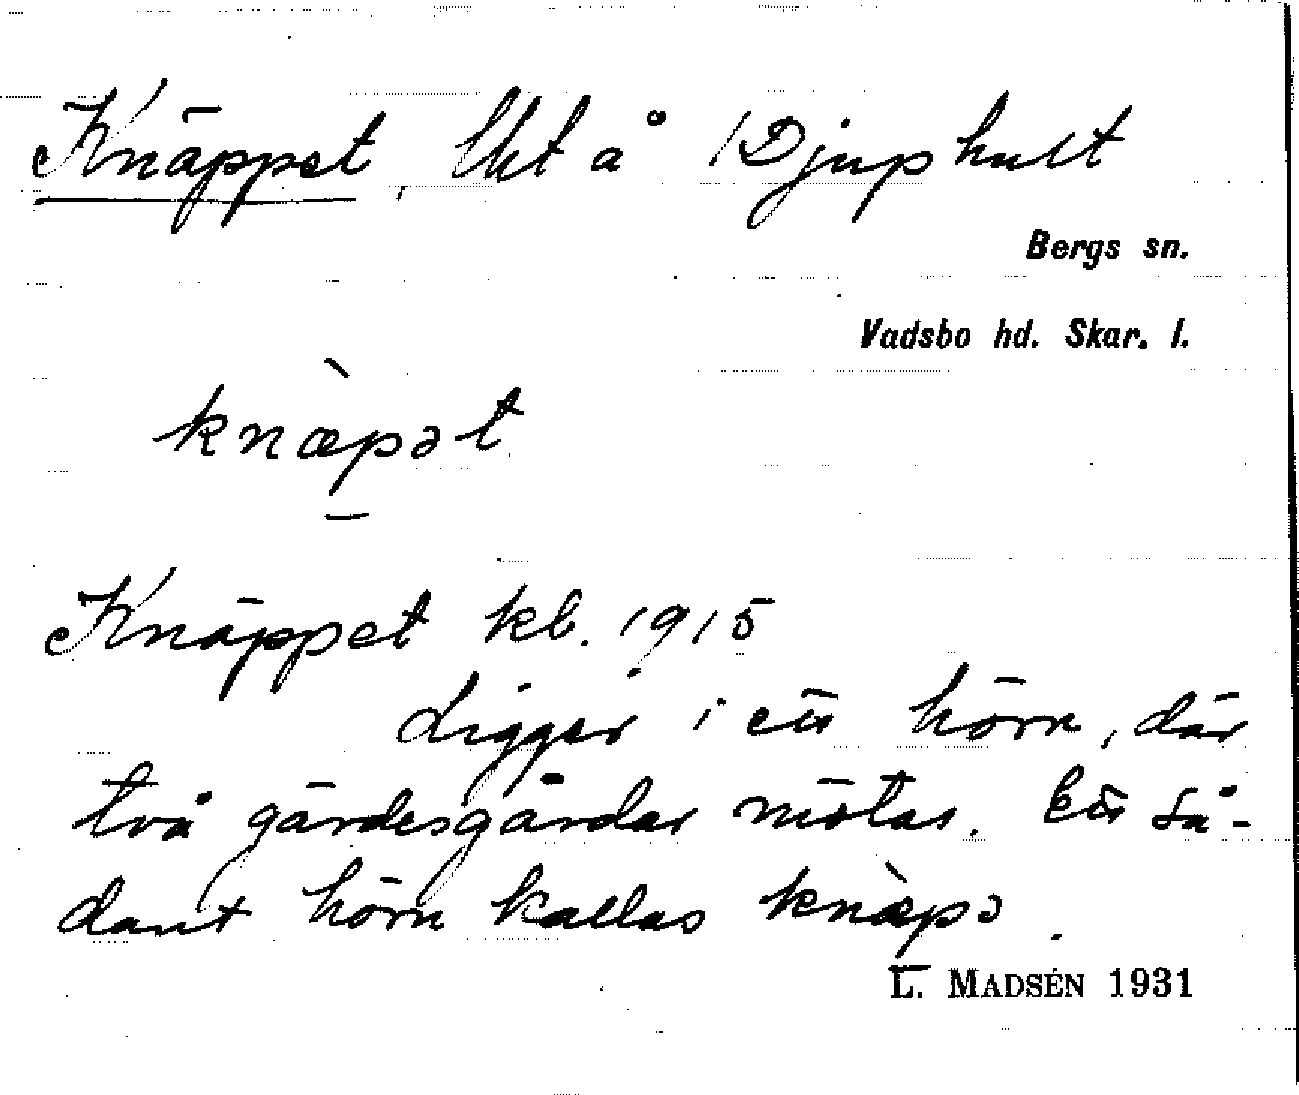 Knäppet lht å 1Djuphult
Bergs sn.
Vadsbo hd. Skar. l.
knæ̀p̱ət
Knäppet kb. 1915
Ligger i ett hörn, där
två gärdesgårdar mötas. Ett så-
dant hörn kallas knæ̀p̱ə.
L. MADSÉN 1931